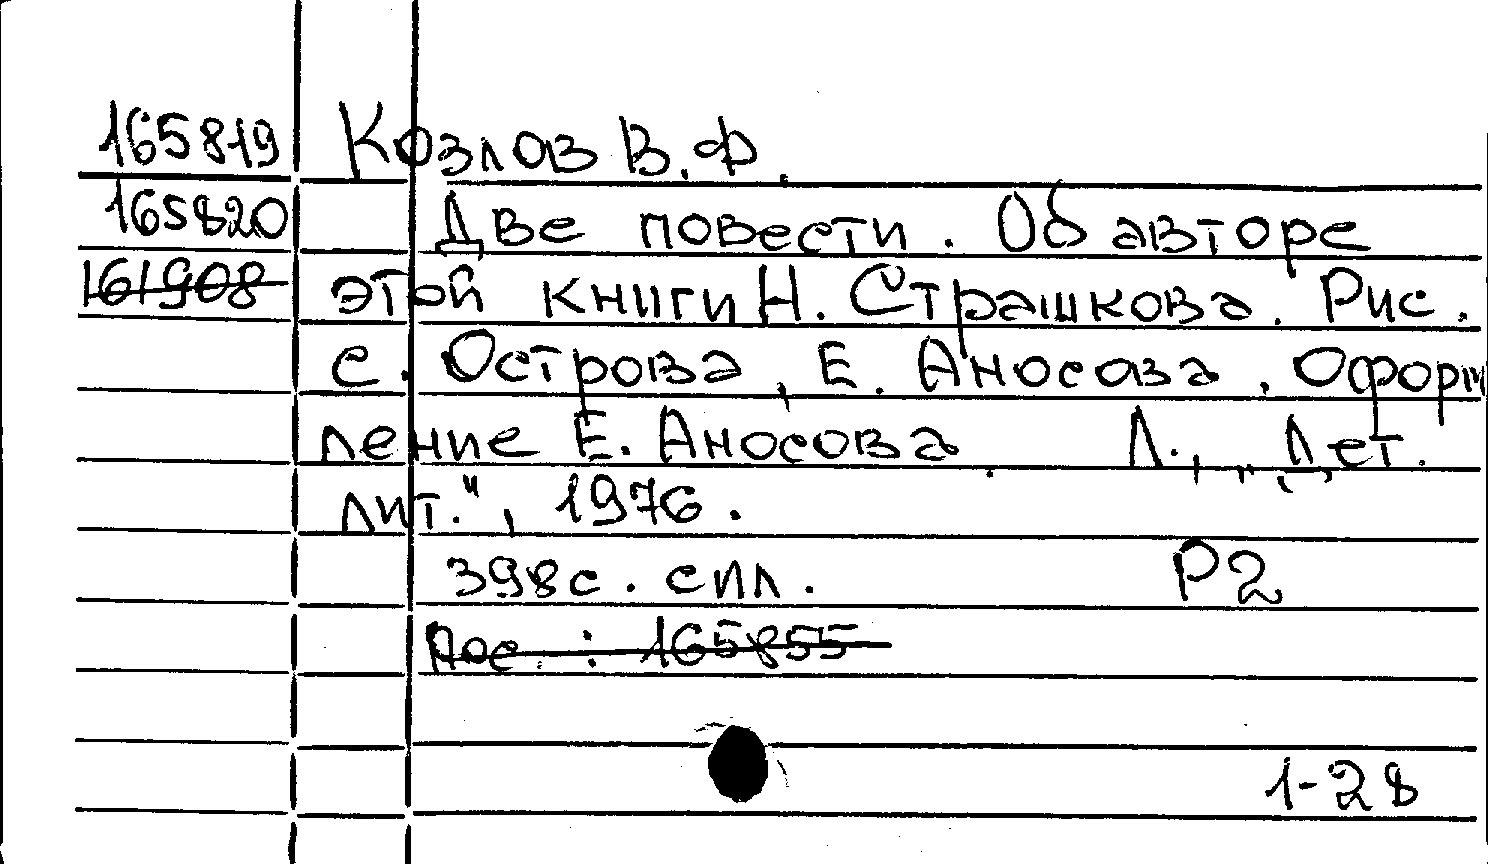 165819 Козлов В.Ф.
165820 Две повести. Об авторе
161908 этой книги Н. Страшкова. Рис.
С. Острова, Е. Аносова. Оформ
ление Е. Аносова. Л., „Дет.
лит.", 1976.
398с. с ил. Р2
: 165855
1-28